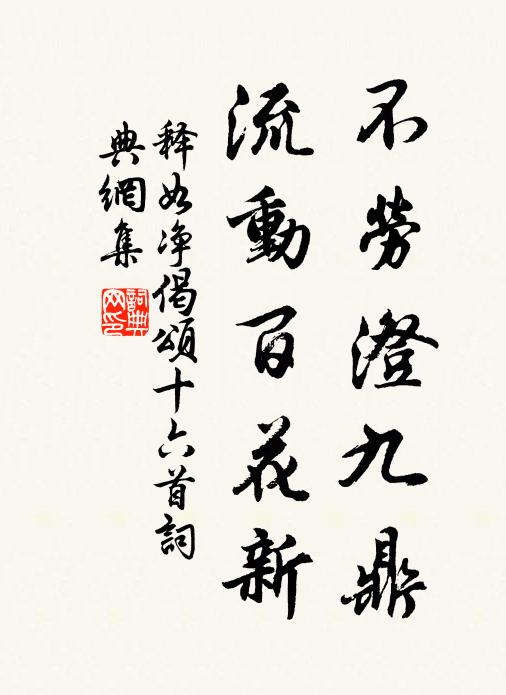 不勞澄九鼎
流動百花新
释如净偈頌十六首詞
典網集
詞典
网印